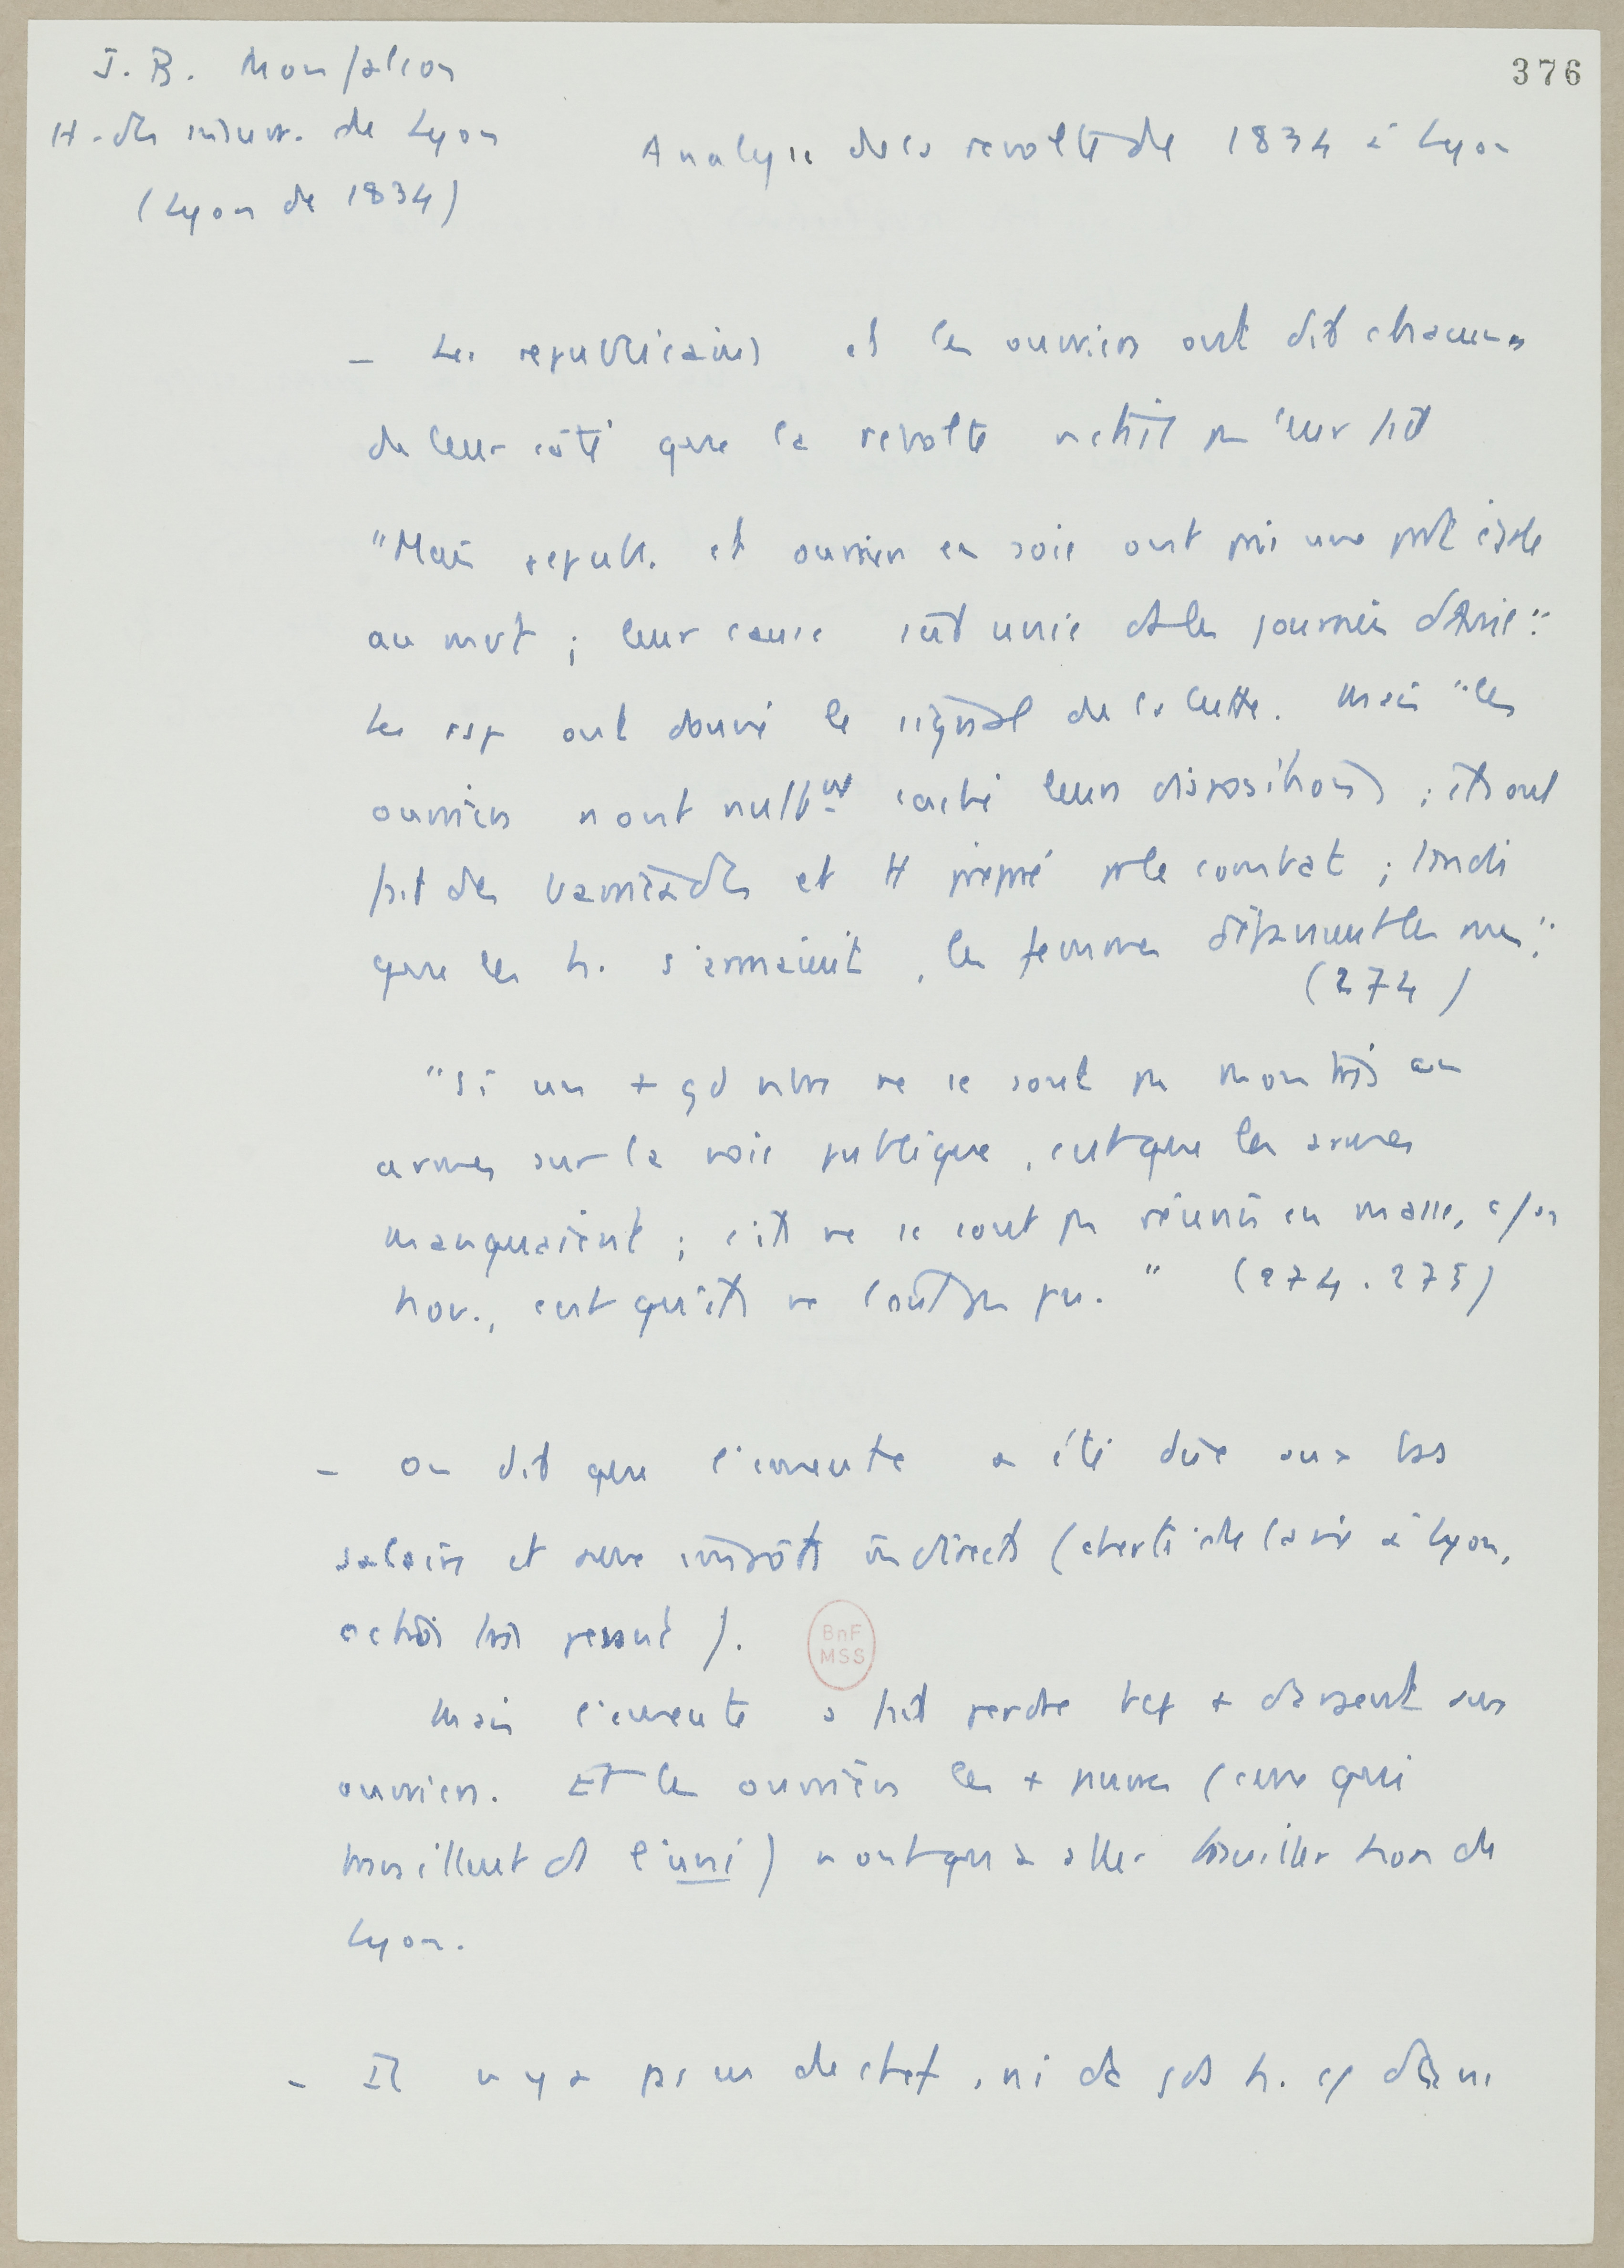 J. B. Monfalcon
376
H. des insurr. de Lyon
(Lyon de 1834)
Analyse de la révolte de 1834 à Lyon
– Les republicains et les ouvriers ont dit chacuns
de leur côté que la révolte n'était pas leur fait
"Mais republ. et ouvriers en soie ont pris une part égale
au mvt ; leur cause était unie ds les journées d'Avril".
Les rep ont donné le signal de la lutte. Mais "les
ouvriers n'ont nullemt caché leurs dispositions ; ils ont
fait des barricades et tt préparé pr le combat ; tandis
que les h. s'armaient, les femmes dépavaient les rues".
(274)
"Si un + gd nbre ne se sont pas montrés en
armes sur la voie publique, c'est que les armes
manquaient ; s'ils ne se sont pas réunis en masse, c/ en
nov., c'est qu'ils ne l'ont pas pu." (274.275)
– On dit que l'émeute a été due aux bas
salaires et aux impôts indirects (cherté de la vie à Lyon,
octroi très pesant).
Mais l'émeute a fait perdre bcp + d'argent aux
ouvriers. Et les ouvriers les + pauvres (ceux qui
travaillent ds l'uni) n'ont qu'à aller travailler hors de
Lyon.
– Il n'y a pas eu de chef, ni de gds h.
BnF
MSS